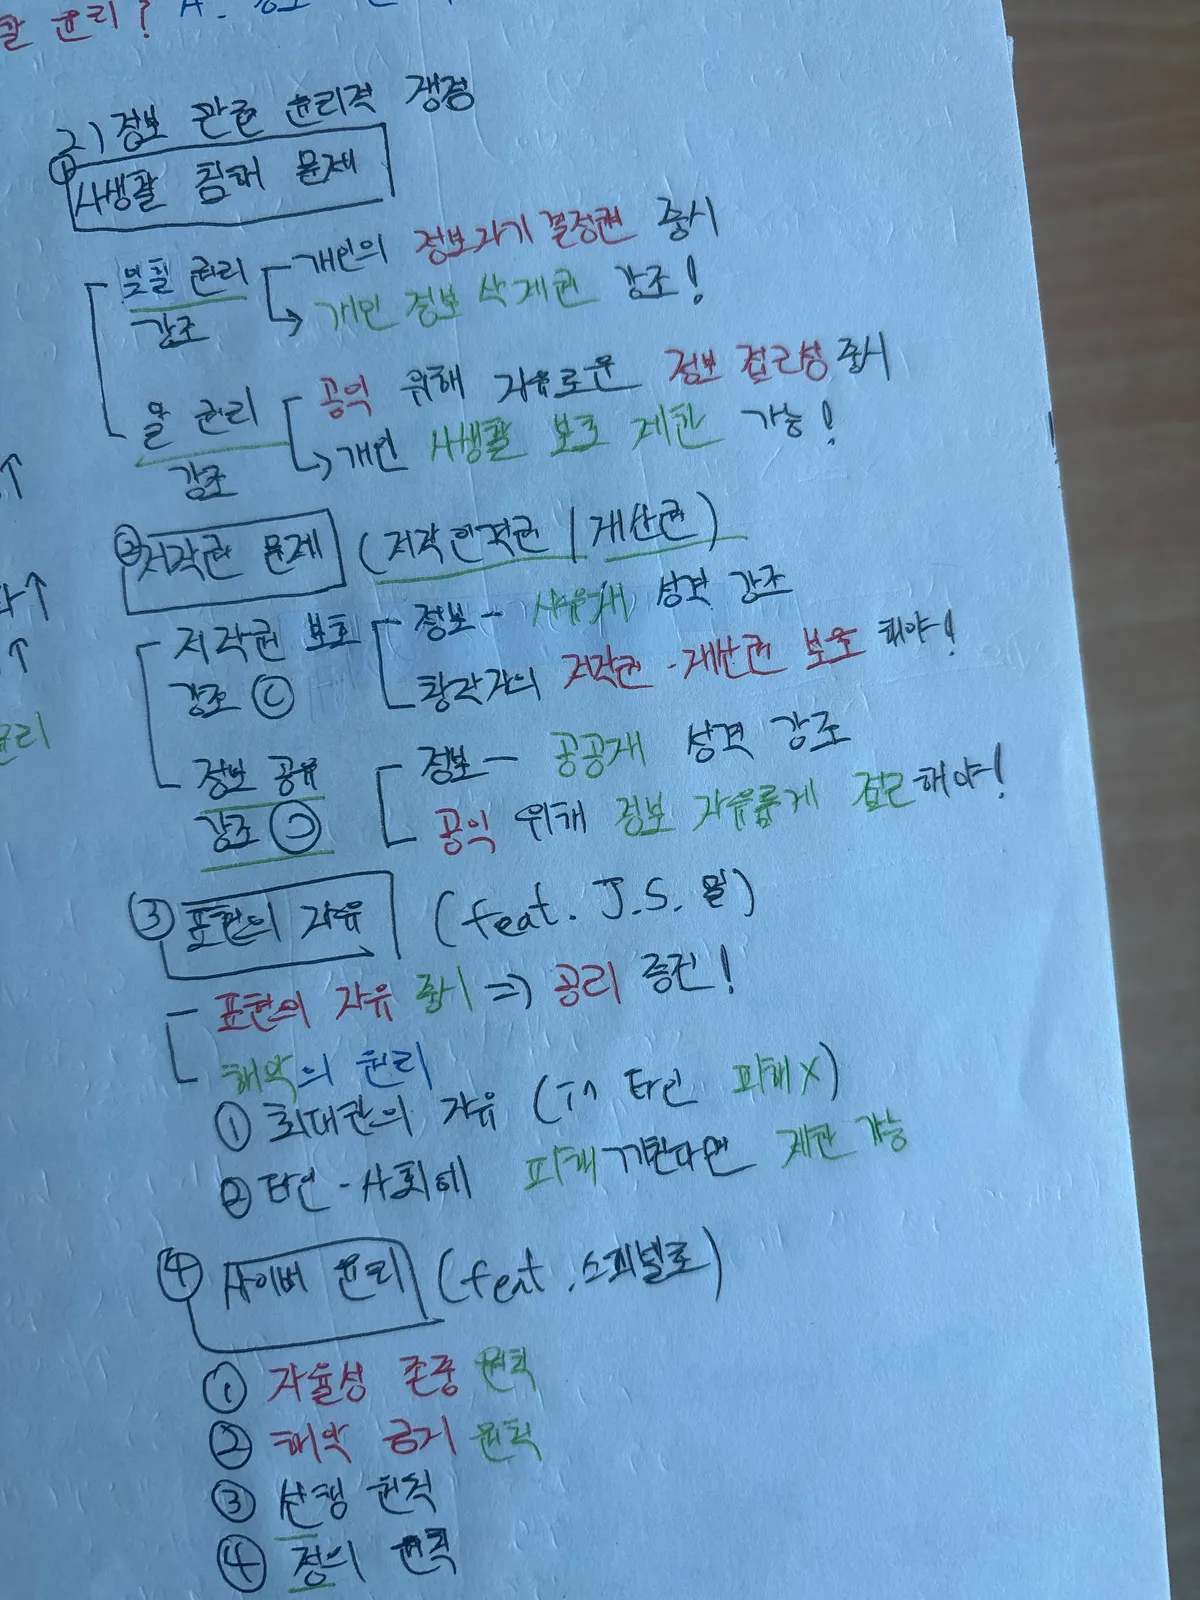 활 윤리? A.
2) 정보 관련 윤리적 쟁점
① 사생활 침해 문제
잊힐 권리 강조
개인의 정보자기결정권 중시
→ 개인 정보 삭제권 강조!
알 권리 강조
공익 위해 자유로운 정보 접근성 중시
→ 개인 사생활 보호 제한 가능!
② 저작권 문제 (저작인격권 / 재산권)
저작권 보호 강조 ⓒ
정보 - 사유재 성격 강조
창작자의 저작권·재산권 보호 해야!
정보 공유 강조
정보 - 공공재 성격 강조
공익 위해 정보 자유롭게 접근해야!
③ 표현의 자유 (feat. J.S. 밀)
표현의 자유 중시 => 공리 증진!
해악의 원리
① 최대한의 자유 (in 타인 피해X)
② 타인·사회에 피해 끼친다면 제한 가능
④ 사이버 윤리 (feat. 스피넬로)
① 자율성 존중 원칙
② 해악 금지 원칙
③ 선행 원칙
④ 정의 원칙
↑
↑
↑
윤리